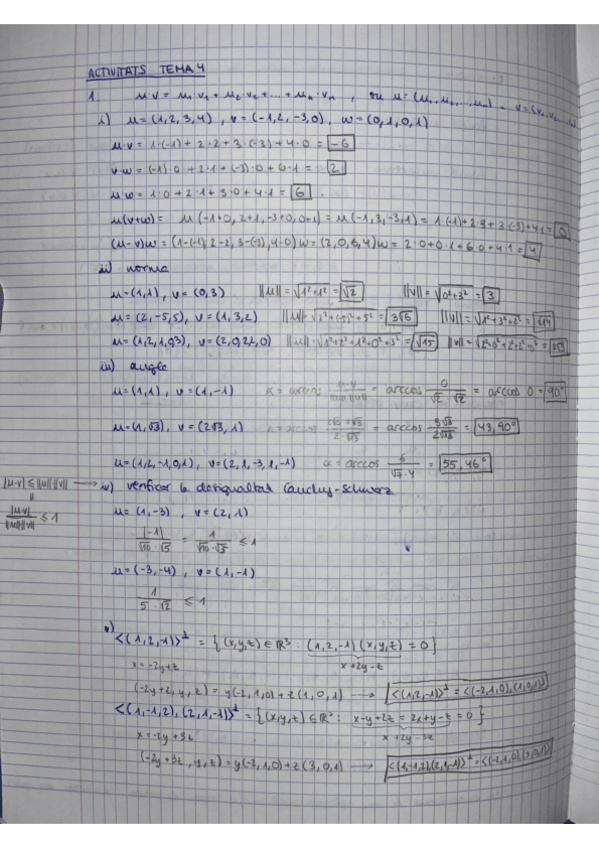 ACTIVITATS TEMA 4
1. u·v = u₁·v₁ + u₂·v₂ + ... + uₙ·vₙ ,
i) u=(1,2,3,4) , v=(-1,2,-3,0) , w=(0,1,0,1)
u·v = 1·(-1)+2·2+3·(-3)+4·0 = -6
v·w = (-1)·0+2·1+(-3)·0+0·1 = 2
u·w = 1·0+2·1+3·0+4·1 = 6
u(v+w) = u(-1+0, 2+1, -3+0, 0+1) = u(-1,3,-3,1) = 1·(-1)+2·3+3·(-3)+4·1 = 0
(u-v)w = (1-(-1), 2-2, 3-(-3), 4-0)w = (2,0,6,4)w = 2·0+0·1+6·0+4·1 = 4
ii) norma
u=(1,1), v=(0,3) ||u|| = √1²+1² = √2 ||v|| = √0²+3² = 3
u=(2,-5,5), v=(1,3,2) = 3√6 ||v|| = √1²+3²+2² = √14
||u|| = √1²+2²+1²+0²+3² = √15
iii) angle
u=(1,1), v=(1,-1) = arccos 0/√2·√2 = arccos 0 = 90°
u=(1,√3), v=(2√3,1) = 43,90°
u=(1,2,-1,0,1), v=(2,1,-3,1,-1) α = arccos 6/√7·4 = 55,46°
|u·v| ≤ ||u||||v|| → iv) verificar la desigualtat Cauchy-Schwarz
|u·v|/||u||||v|| ≤ 1
u=(1,-3) , v=(2,1)
|-1|/√10·√5 = 1/√10·√5 ≤ 1
u=(-3,-4) , v=(1,-1)
1/5·√2 ≤ 1
v)
<(1,2,-1)>⊥ = {(x,y,z)∈ℝ³ : (1,2,-1)(x,y,z) = 0}
x=-2y+z x+2y-z
(-2y+z, y, z) = y(-2,1,0)+z(1,0,1) → <(1,2,-1)>⊥ = <(-2,1,0),(1,0,1)>
<(1,-1,2), (2,1,-1)>⊥ = {(x,y,z)∈ℝ³ : x-y+2z = 2x+y-z = 0}
x=-2y+3z x+2y-3z
(-2y+3z, y, z) = y(-2,1,0)+z(3,0,1) → <(1,-1,2),(2,1,-1)>⊥ = <(-2,1,0),(3,0,1)>